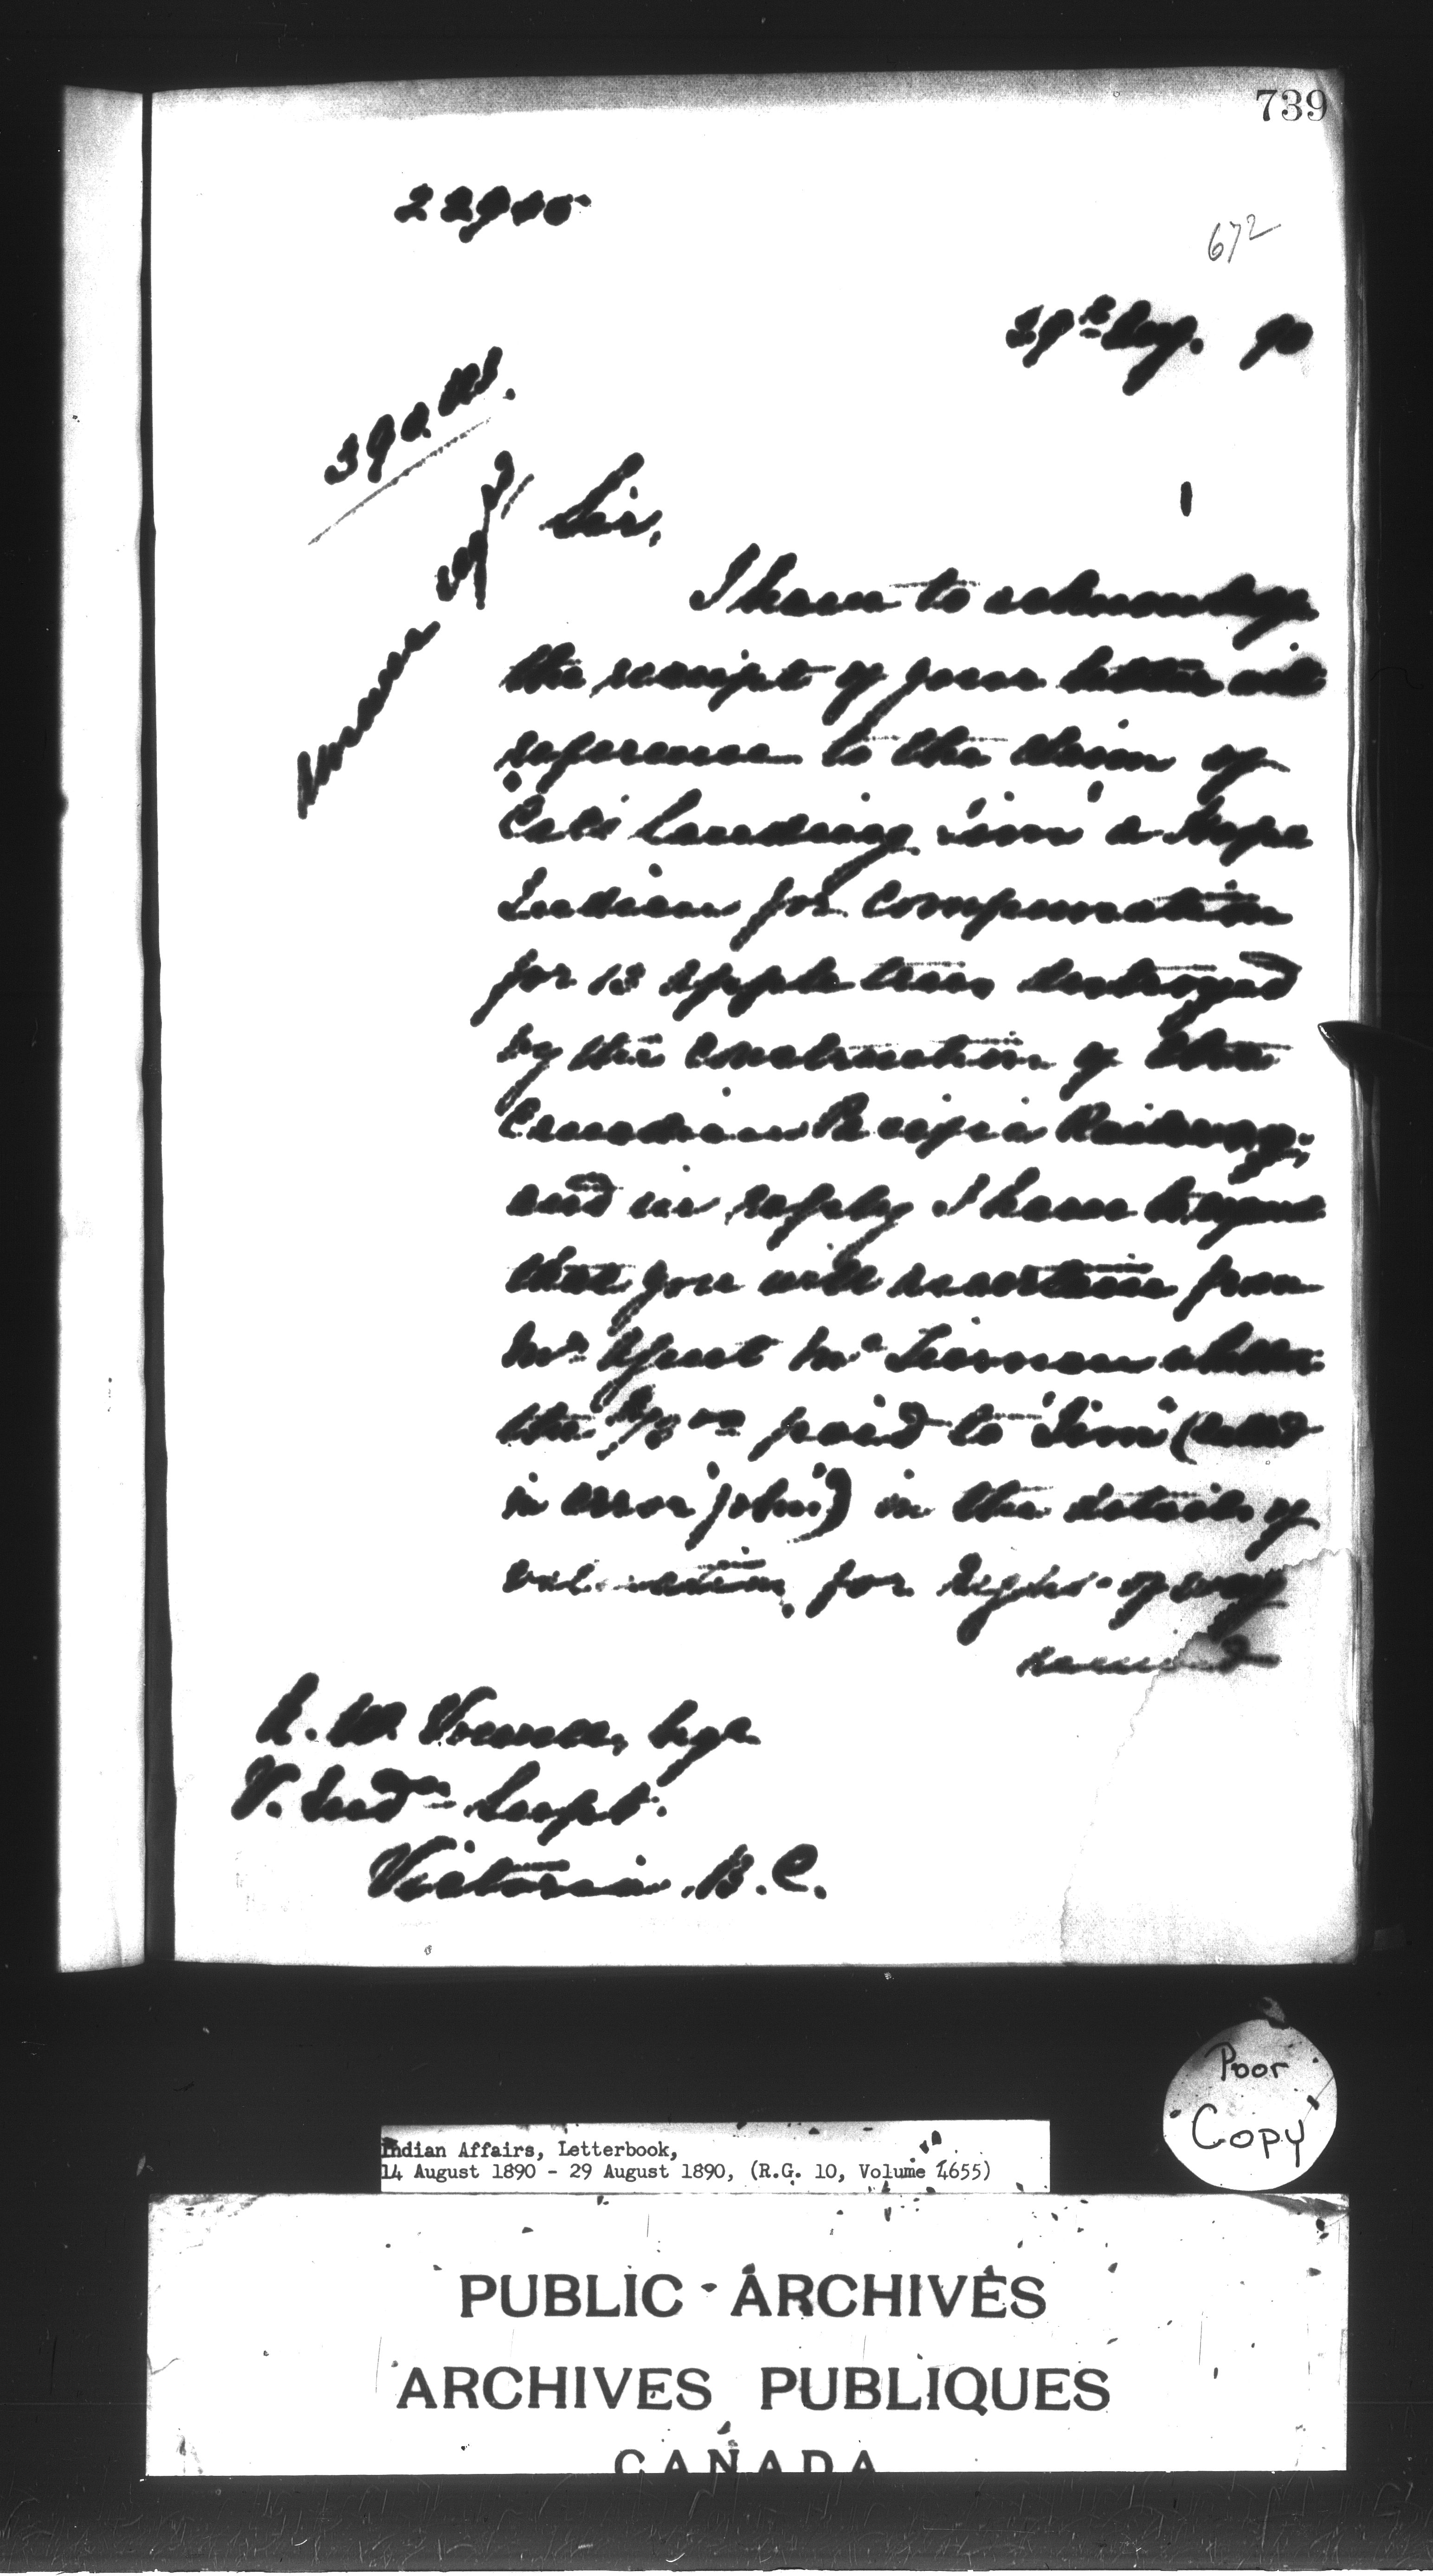 739
22905
672
29th Aug. 90
Sir,
I have to acknowledge
the receipt of your letter with
reference to the claim of
Landing 'Jim' a Hope
Indian for compensation
for 13 apple trees destroyed
by the construction of the
Canadian Pacific Railway;
and in reply I have to request
that you will ascertain from
Mr Agent McTiernan whether
the paid to 'Jim' (called
in error 'John') in the details of
valuation for Right-of-way
A. W. Vowell, Esqr
V. Indn Supt.
Victoria B.C.
Poor
Copy
Indian Affairs, Letterbook,
14 August 1890 - 29 August 1890, (R.G. 10, Volume 4655)
PUBLIC ARCHIVES
ARCHIVES PUBLIQUES
CANADA